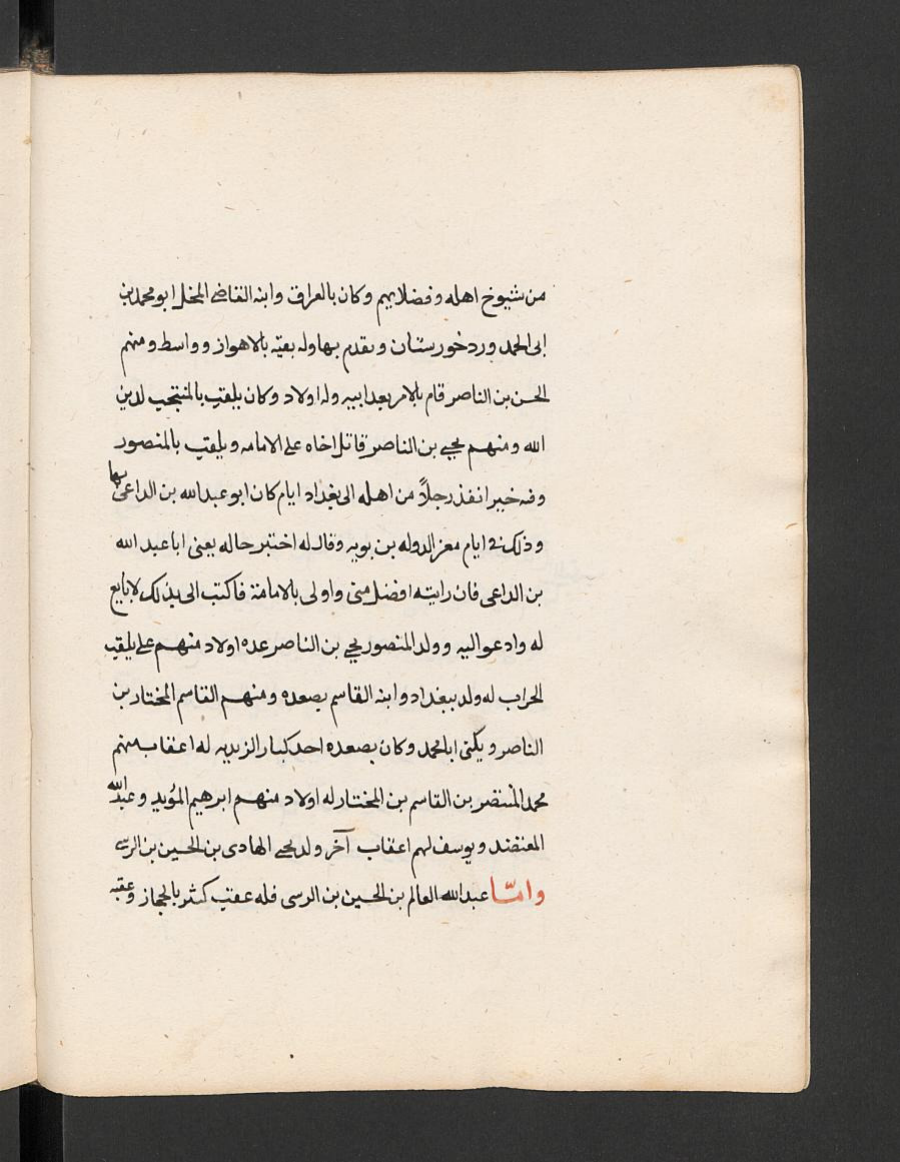 من شيوخ اهله وفضلايهم وكان بالعراق وابنه القاضي المخل ابو محمد بن
ابى الحمد ورد خورستان وتقدم بها وله بقيه بالاهواز وواسط ومنهم
الحسن بن الناصر قام بالامر بعد ابيه وله اولاد وكان يلقب بالمنتجب لدين
الله ومنهم يحيى بن الناصر قاتل اخاه على الامامه ويلقب بالمنصور
وفه خير انفذ رجلاً من اهله الى بغداد ايام كان ابو عبد الله بن الداعى بها
وذلك في ايام معز الدوله بن بويه وقال له اختبر حاله يعنى ابا عبد الله
بن الداعى فان رايته افضل منى واولى بالامامة فاكتب الى بذلك لابايع
له وادعو اليه وولد المنصور يحيى بن الناصر عده اولاد منهم على يلقب
الحراب له ولد ببغداد وابنه القاسم بصعده ومنهم القاسم المختار بن
الناصر ويكنى ابا محمد وكان بصعده احد كبار الزيديه له اعقاب منهم
محمد المنتصر بن القاسم بن المختار له اولاد منهم ابرهيم المؤيد وعبد الله
المعتضد ويوسف لهم اعقاب آخر ولد يحيى الهادى بن الحسين بن الرسى
وامّا عبد الله العالم بن الحسين بن الرسى فله عقب كثر بالحجاز وعقبه